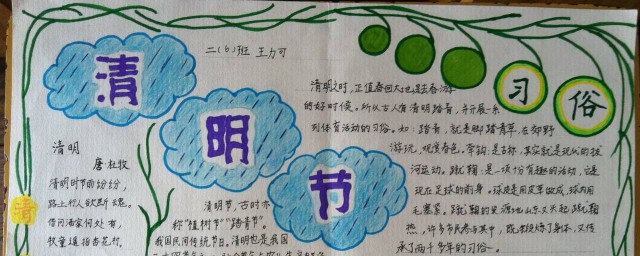 二(6)班 王力可
清
明
节
习
俗
清明
唐 杜牧
清明时节雨纷纷,
路上行人欲断魂。
借问酒家何处有,
牧童遥指杏花村。
清明节,古时亦
称"植树节""踏青节"。
我国民间传统节日。清明也是我国
清明之时,正值春回大地
的好时候。所以古人有清明踏青,并开展一系
列体育活动的习俗。如:踏青,就是脚踏青草,在郊野
游玩,观赏春色。
运动。蹴鞠是一项有趣的活动,它是
现在足球的前身。球皮是用皮革做成,球内用
毛塞紧。
热,许多市民参与其中,既锻炼了身体,又传
承了两千多年的习俗。
清